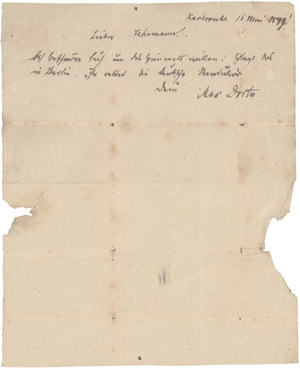 Karlsruhe 16 Mai 1849!
Lieber
Ich beschwöre Euch um des Himmels willen: schlagt los
in Berlin. Ihr rettet die deutsche Revolution
Dein Max Dortu